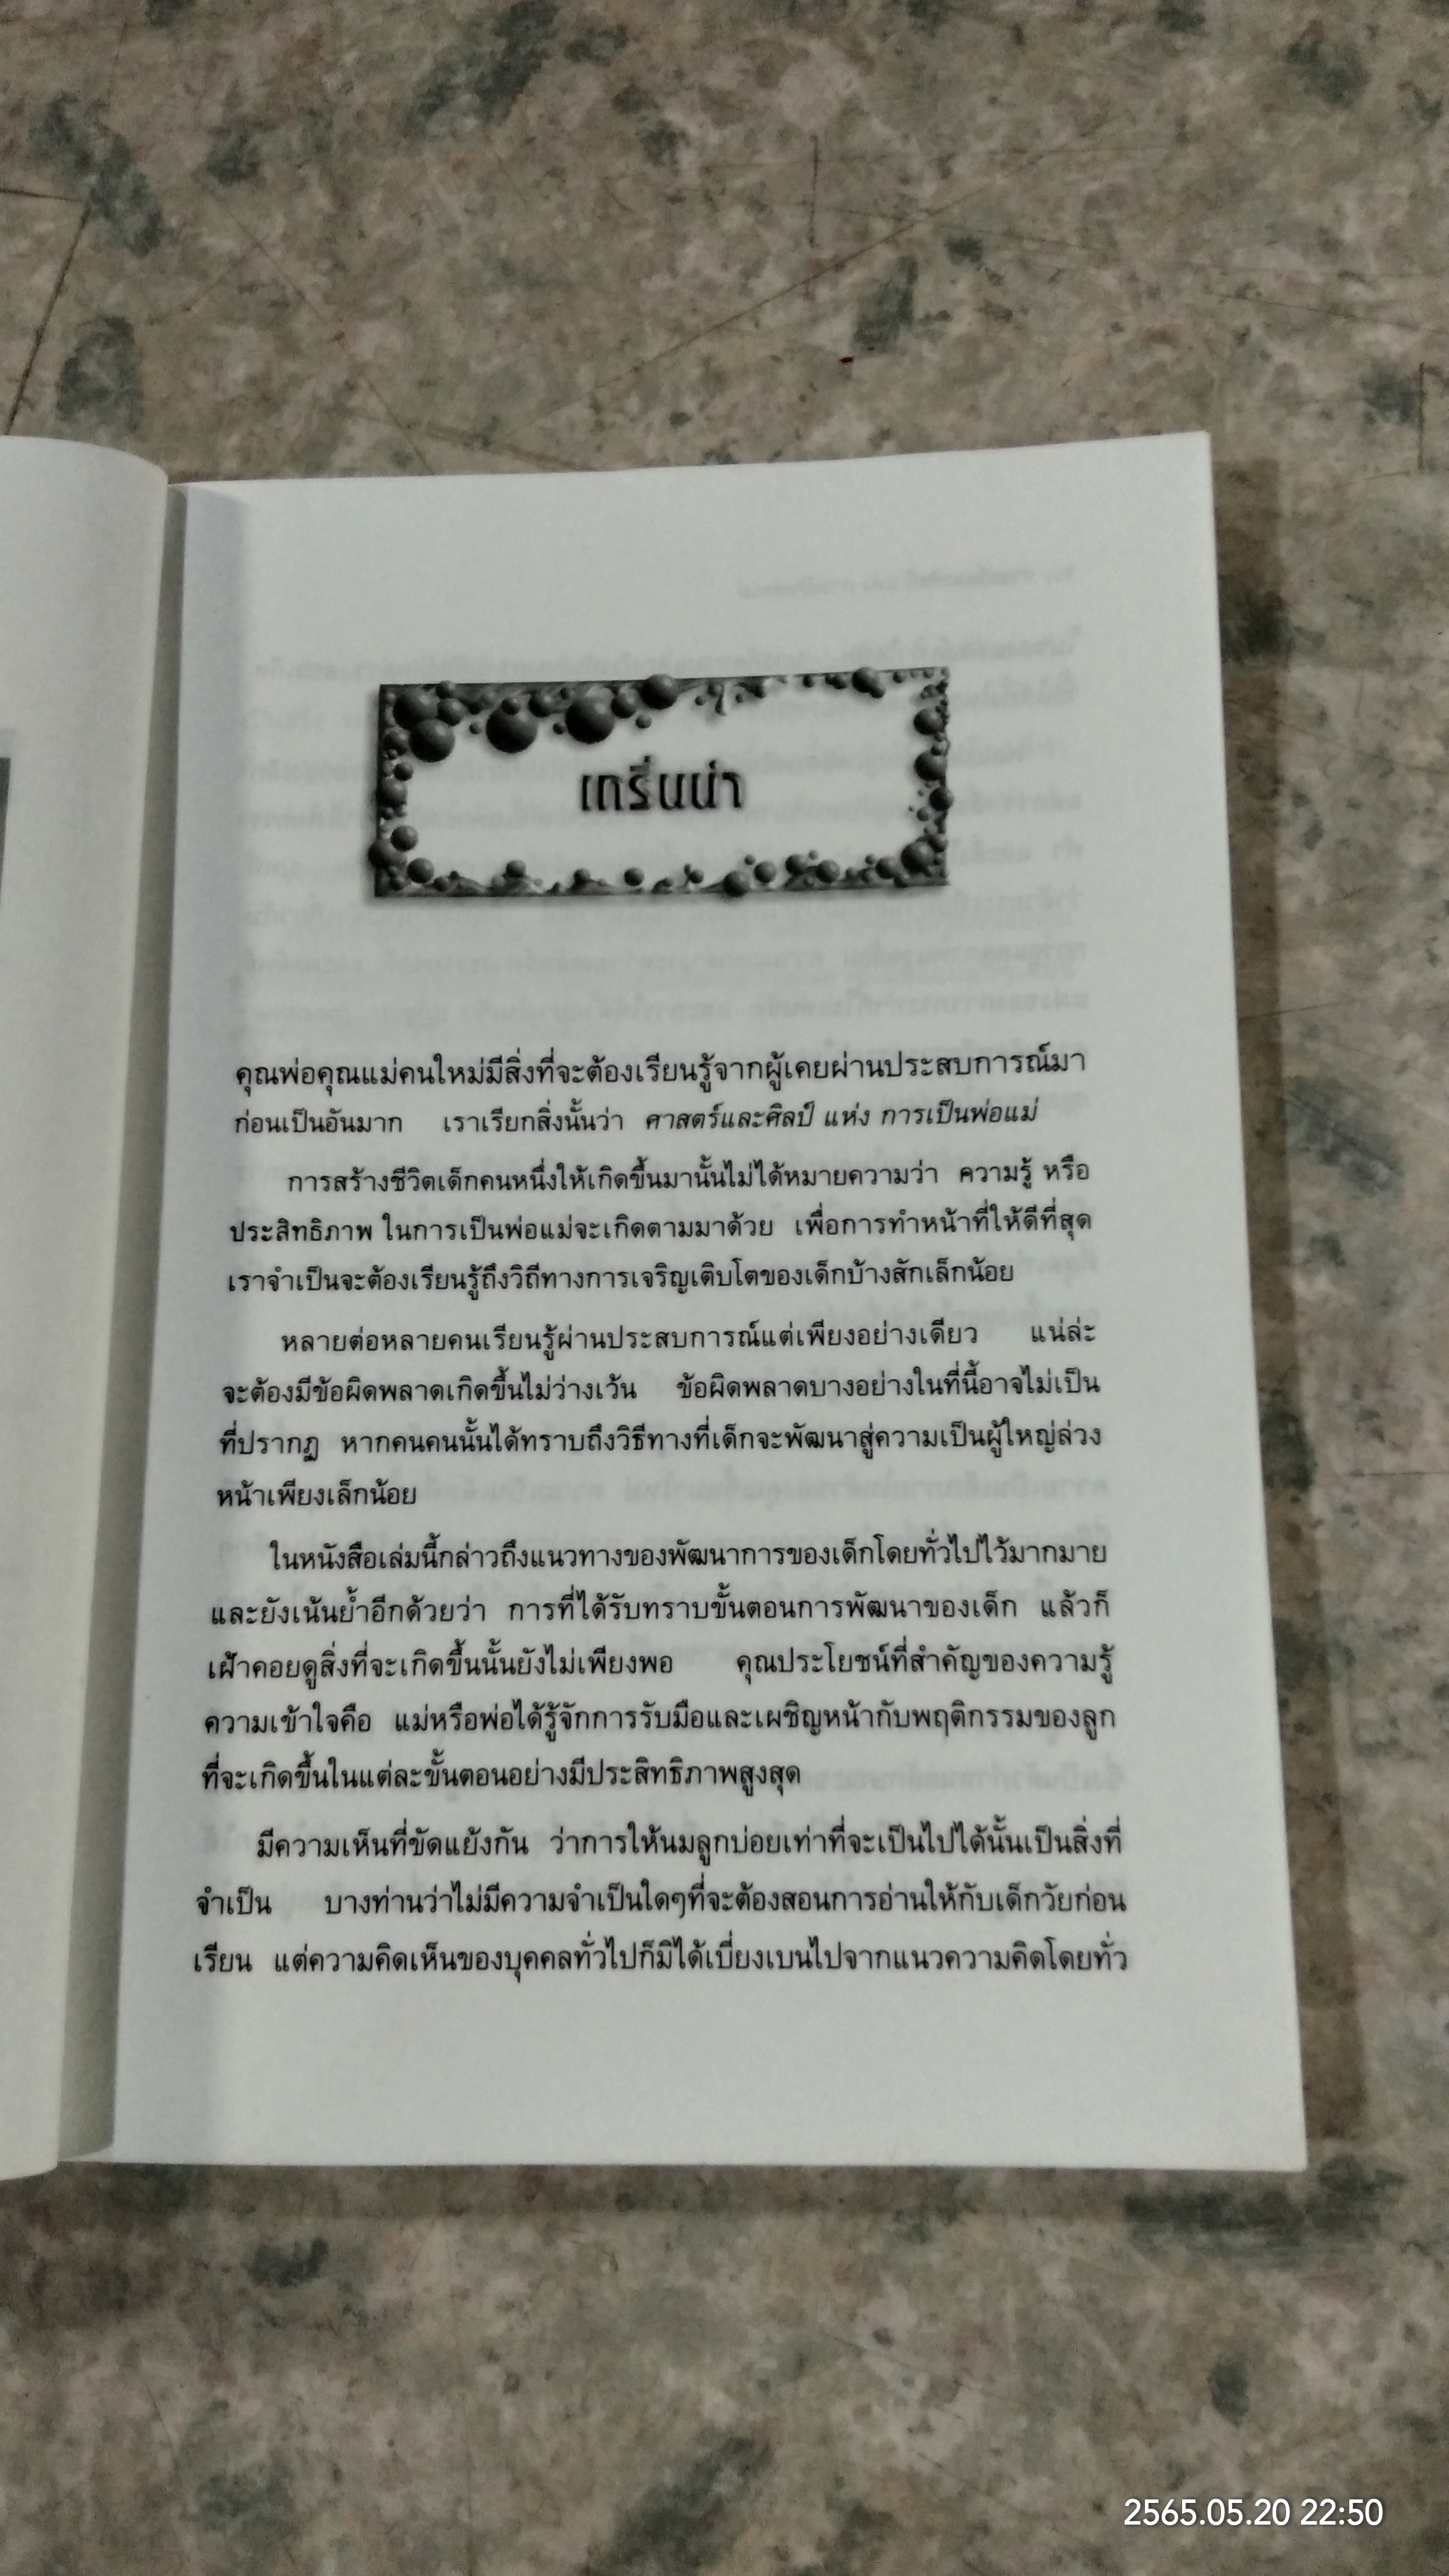 เกริ่นนำ
คุณพ่อคุณแม่คนใหม่มีสิ่งที่จะต้องเรียนรู้จากผู้เคยผ่านประสบการณ์มา
ก่อนเป็นอันมาก เราเรียกสิ่งนั้นว่า ศาสตร์และศิลป์ แห่ง การเป็นพ่อแม่
การสร้างชีวิตเด็กคนหนึ่งให้เกิดขึ้นมานั้นไม่ได้หมายความว่า ความรู้ หรือ
ประสิทธิภาพ ในการเป็นพ่อแม่จะเกิดตามมาด้วย เพื่อการทำหน้าที่ให้ดีที่สุด
เราจำเป็นจะต้องเรียนรู้ถึงวิถีทางการเจริญเติบโตของเด็กบ้างสักเล็กน้อย
หลายต่อหลายคนเรียนรู้ผ่านประสบการณ์แต่เพียงอย่างเดียว แน่ล่ะ
จะต้องมีข้อผิดพลาดเกิดขึ้นไม่ว่างเว้น ข้อผิดพลาดบางอย่างในที่นี้อาจไม่เป็น
ที่ปรากฏ หากคนคนนั้นได้ทราบถึงวิธีทางที่เด็กจะพัฒนาสู่ความเป็นผู้ใหญ่ล่วง
หน้าเพียงเล็กน้อย
ในหนังสือเล่มนี้กล่าวถึงแนวทางของพัฒนาการของเด็กโดยทั่วไปไว้มากมาย
และยังเน้นย้ำอีกด้วยว่า การที่ได้รับทราบขั้นตอนการพัฒนาของเด็ก แล้วก็
เฝ้าคอยดูสิ่งที่จะเกิดขึ้นนั้นยังไม่เพียงพอ คุณประโยชน์ที่สำคัญของความรู้
ความเข้าใจคือ แม่หรือพ่อได้รู้จักการรับมือและเผชิญหน้ากับพฤติกรรมของลูก
ที่จะเกิดขึ้นในแต่ละขั้นตอนอย่างมีประสิทธิภาพสูงสุด
มีความเห็นที่ขัดแย้งกัน ว่าการให้นมลูกบ่อยเท่าที่จะเป็นไปได้นั้นเป็นสิ่งที่
จำเป็น บางท่านว่าไม่มีความจำเป็นใดๆที่จะต้องสอนการอ่านให้กับเด็กวัยก่อน
เรียน แต่ความคิดเห็นของบุคคลทั่วไปก็มิได้เบี่ยงเบนไปจากแนวความคิดโดยทั่ว
2565.05.20 22:50